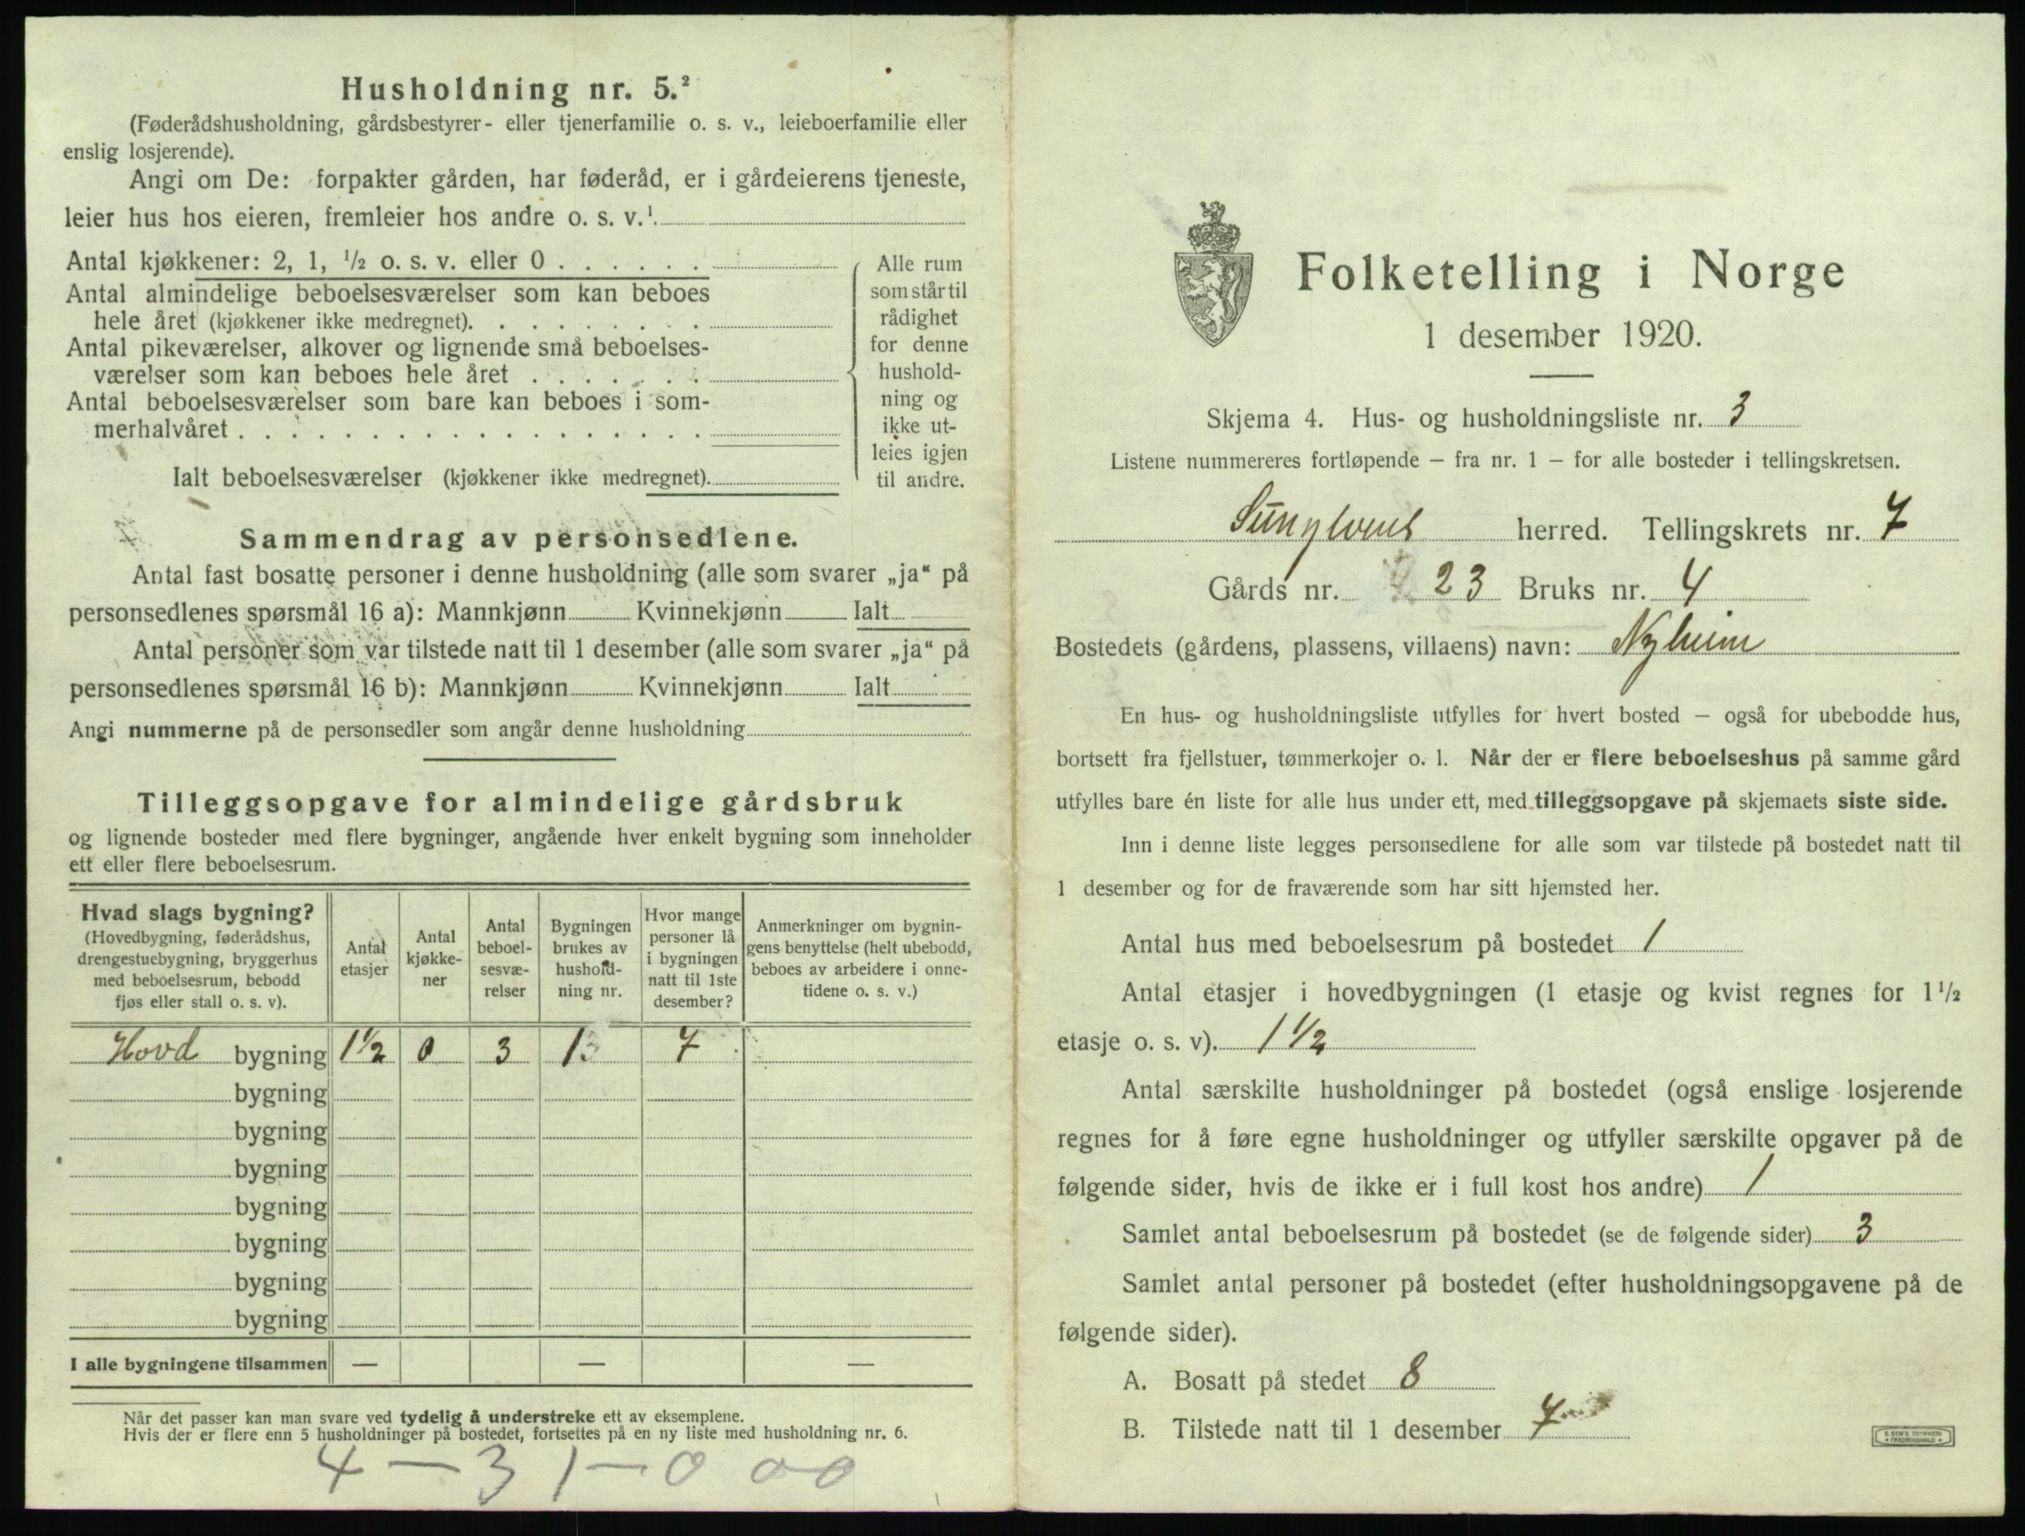 Husholdning nr. 5.²
(Føderådshusholdning, gårdsbestyrer- eller tjenerfamilie o. s. v., leieboerfamilie eller
enslig losjerende).
Angi om De: forpakter gården, har føderåd, er i gårdeierens tjeneste,
leier hus hos eieren, fremleier hos andre o. s. v.¹
Antal kjøkkener: 2, 1, ½ o. s. v. eller 0 . . . . . .
Antal almindelige beboelsesværelser som kan beboes
hele året (kjøkkener ikke medregnet). . . . . . . . .
Antal pikeværelser, alkover og lignende små beboelses-
værelser som kan beboes hele året . . . . . . .
Antal beboelsesværelser som bare kan beboes i som-
merhalvåret . . . . . . . . . . . . . . . . . .
Ialt beboelsesværelser (kjøkkener ikke medregnet).
Alle rum
som står til
rådighet
for denne
hushold-
ning og
ikke ut-
leies igjen
til andre.
Sammendrag av personsedlene.
Antal fast bosatte personer i denne husholdning (alle som svarer „ja“ på
personsedlenes spørsmål 16 a): Mannkjønn Kvinnekjønn Ialt
Antal personer som var tilstede natt til 1 desember (alle som svarer „ja“ på
personsedlenes spørsmål 16 b): Mannkjønn Kvinnekjønn Ialt
Angi nummerne på de personsedler som angår denne husholdning
Tilleggsopgave for almindelige gårdsbruk
og lignende bosteder med flere bygninger, angående hver enkelt bygning som inneholder
ett eller flere beboelsesrum.
Hvad slags bygning?
(Hovedbygning, føderådshus,
drengestuebygning, bryggerhus
med beboelsesrum, bebodd
fjøs eller stall o. s. v).
Antal
etasjer
Antal
kjøkke-
ner
Antal
beboel-
sesvæ-
relser
Bygningen
brukes av
hushold-
ning nr.
Hvor mange
personer lå
i bygningen
natt til 1ste
desember?
Anmerkninger om bygnin-
gens benyttelse (helt ubebodd,
beboes av arbeidere i onne-
tidene o. s. v.)
Hovd bygning 1½ 0 3 1 7
bygning
bygning
bygning
bygning
bygning
bygning
bygning
I alle bygningene tilsammen — — —
Når det passer kan man svare ved tydelig å understreke ett av eksemplene.
Hvis der er flere enn 5 husholdninger på bostedet, fortsettes på en ny liste med husholdning nr. 6.
4 — 3 1 — 0 0 — 0
Folketelling i Norge
1 desember 1920.
Skjema 4. Hus- og husholdningsliste nr. 3
Listene nummereres fortløpende – fra nr. 1 – for alle bosteder i tellingskretsen.
Sunylvens herred. Tellingskrets nr. 7
Gårds nr. 23 Bruks nr. 4
Bostedets (gårdens, plassens, villaens) navn: Nyheim
En hus- og husholdningsliste utfylles for hvert bosted – også for ubebodde hus,
bortsett fra fjellstuer, tømmerkojer o. l. Når der er flere beboelseshus på samme gård
utfylles bare én liste for alle hus under ett, med tilleggsopgave på skjemaets siste side.
Inn i denne liste legges personsedlene for alle som var tilstede på bostedet natt til
1 desember og for de fraværende som har sitt hjemsted her.
Antal hus med beboelsesrum på bostedet 1
Antal etasjer i hovedbygningen (1 etasje og kvist regnes for 1½
etasje o. s. v). 1½
Antal særskilte husholdninger på bostedet (også enslige losjerende
regnes for å føre egne husholdninger og utfyller særskilte opgaver på de
følgende sider, hvis de ikke er i full kost hos andre) 1
Samlet antal beboelsesrum på bostedet (se de følgende sider) 3
Samlet antal personer på bostedet (efter husholdningsopgavene på de
følgende sider).
A. Bosatt på stedet 8
B. Tilstede natt til 1 desember 7